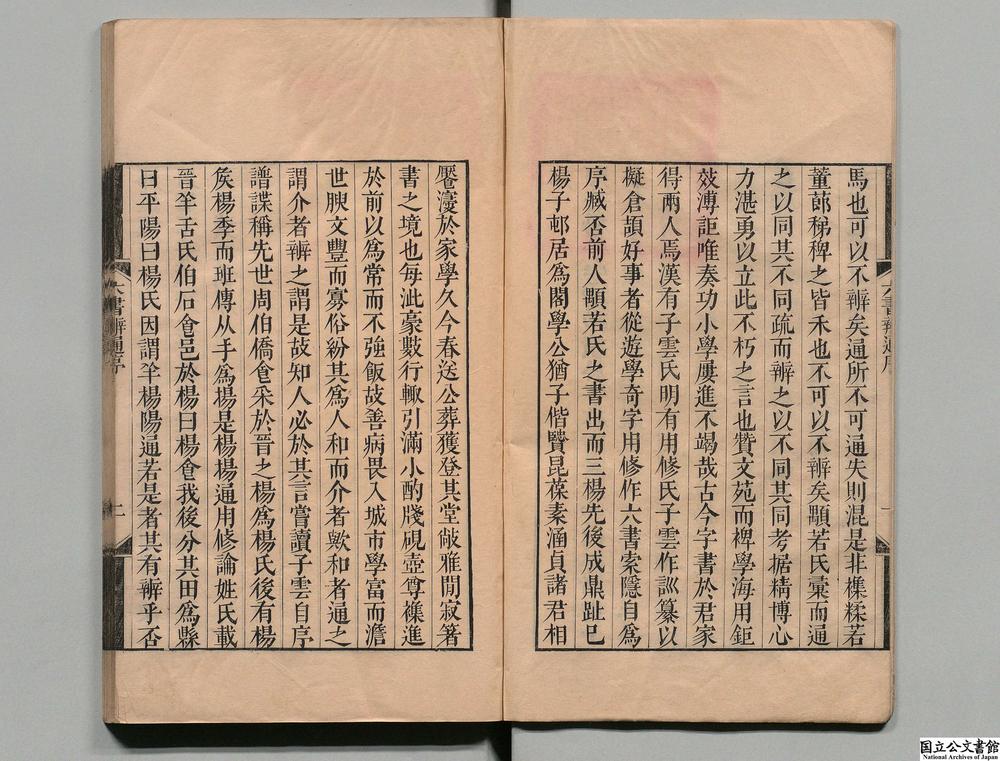 馬也可以不辨矣通所不可通失則混是非櫵糅若
董蓈稊稗之皆禾也不可以不辨矣顒若氏彙而通
之以同其不同疏而辨之以不同其同考据精博心
力湛勇以立此不朽之言也贊文苑而裨學海用鉅
效溥詎唯奏功小學屢進不竭哉古今字書於君家
得兩人焉漢有子雲氏明有用修氏子雲作訓纂以
擬倉頡好事者從遊學奇字用修作六書索隱自爲
序臧否前人顒若氏之書出而三楊先後成鼎趾巳
楊子邨居爲閣學公猶子偕贒昆葆素涵貞諸君相
饜㝧於家學久今春送公葬獲登其堂敞雅閒寂箸
書之境也每泚豪數行輙引滿小酌牋硯壺尊襍進
於前以爲常而不強飯故善病畏入城市學富而澹
世腴文豐而寡俗紛其爲人和而介者歟和者通之
謂介者辨之謂是故知人必於其言嘗讀子雲自序
譜諜稱先世周伯僑食采於晉之楊爲楊氏後有楊
矦楊季而班傳从手爲揚是楊揚通用修論姓氏載
晉羊舌氏伯石食邑於楊曰楊食我後分其田爲縣
曰平陽曰楊氏因謂羊楊陽通若是者其有辨乎否
六書辨通序
一
六書辨通序
二
国立公文書館
National Archives of Japan